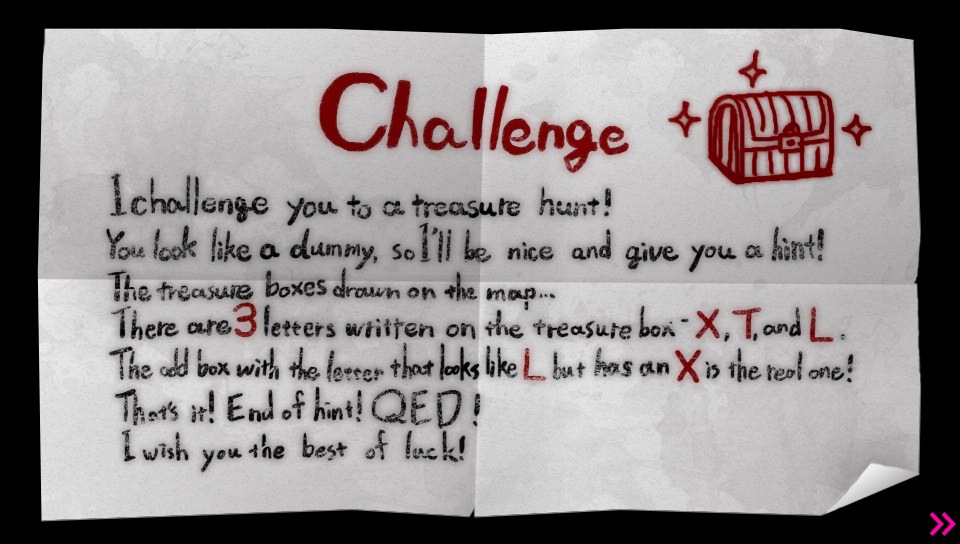 Challenge
I challenge you to a treasure hunt!
You look like a dummy, so I'll be nice and give you a hint!
The treasure boxes drawn on the map...
There are 3 letters written on the treasure box - X, T, and L.
The odd box with the letter that looks like L but has an X is the real one!
That's it! End of hint! QED!
I wish you the best of luck!